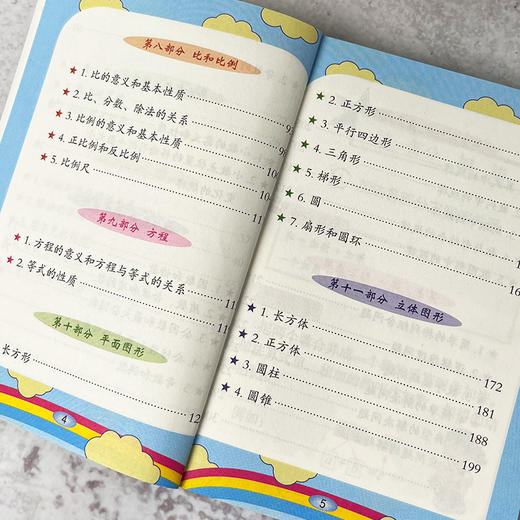 第八部分 比和比例
★ 1. 比的意义和基本性质
★ 2. 比、分数、除法的关系
★ 3. 比例的意义和基本性质
★ 4. 正比例和反比例
★ 5. 比例尺
第九部分 方程
★ 1. 方程的意义和方程与等式的关系
★ 2. 等式的性质
第十部分 平面图形
长方形
4
★ 2. 正方形
★ 3. 平行四边形
★ 4. 三角形
★ 5. 梯形
★ 6. 圆
★ 7. 扇形和圆环
第十一部分 立体图形
★ 1. 长方体 172
★ 2. 正方体 181
★ 3. 圆柱 188
★ 4. 圆锥 199
5